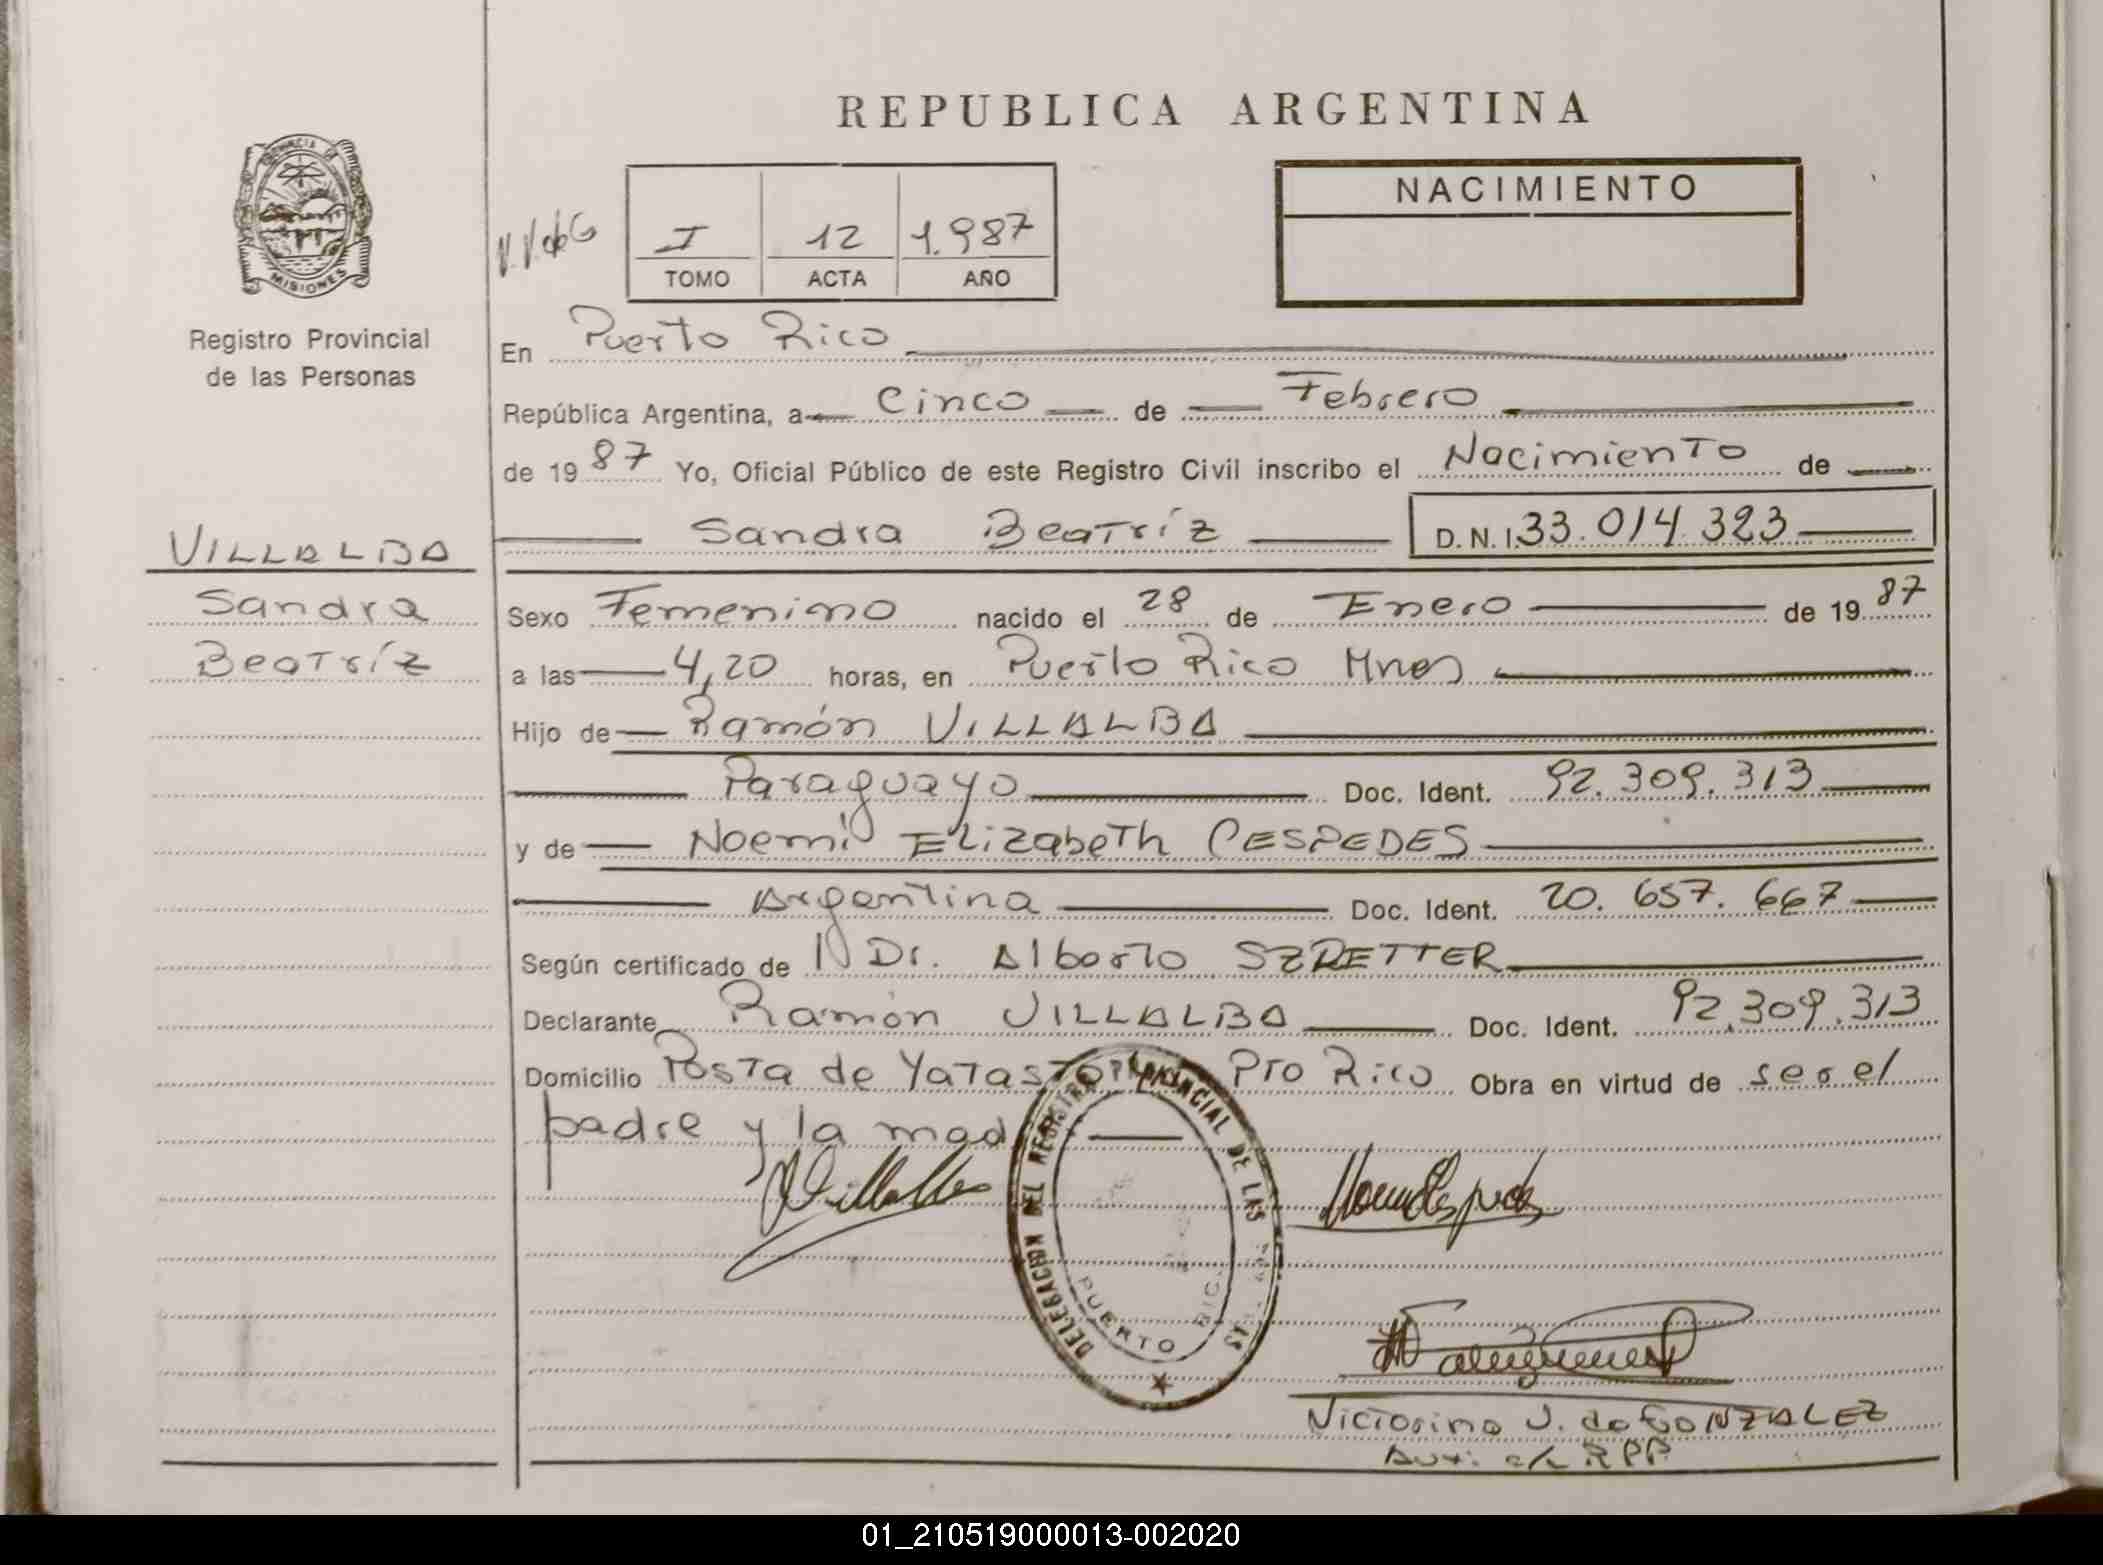 REPUBLICA ARGENTINA
PROVINCIA DE
MISIONES
Registro Provincial
de las Personas
V.V.deG
I 12 1.987
TOMO ACTA AÑO
NACIMIENTO
En Puerto Rico
República Argentina, a Cinco de Febrero
de 1987 Yo, Oficial Público de este Registro Civil inscribo el Nacimiento de
Sandra Beatríz D.N.I. 33.014.323
VILLALBA
Sandra
Beatríz
Sexo Femenino nacido el 28 de Enero de 1987
a las 4,20 horas, en Puerto Rico Mnes
Hijo de Ramón VILLALBA
Paraguayo Doc. Ident. 92.309.313
y de Noemí Elizabeth CESPEDES
Argentina Doc. Ident. 20.657.667
Según certificado de Dr. Alberto SZRETTER
Declarante Ramón VILLALBA Doc. Ident. 92.309.313
Domicilio Posta de Yatasto Pto Rico Obra en virtud de ser el
padre y la mad
DELEGACION DEL REGISTRO PROVINCIAL DE LAS
PUERTO RICO
Victorina V. de GONZALEZ
Aux. a/c RPP
01_210519000013-002020